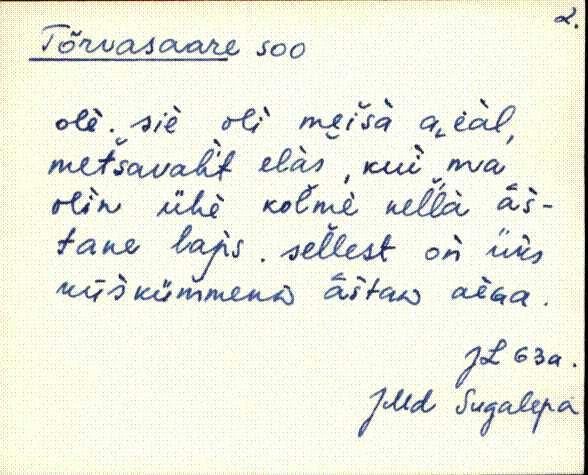 2.
Tõrvasaare soo
olè. siè oli meìšà aˬèàl,
metšavaht elàs, kui ma
olin ühè kolmè nellà ās-
tane laps. sellest on üks
viiskümmenD āstaD aèGa.
JL 63a.
JMd Sugalepa